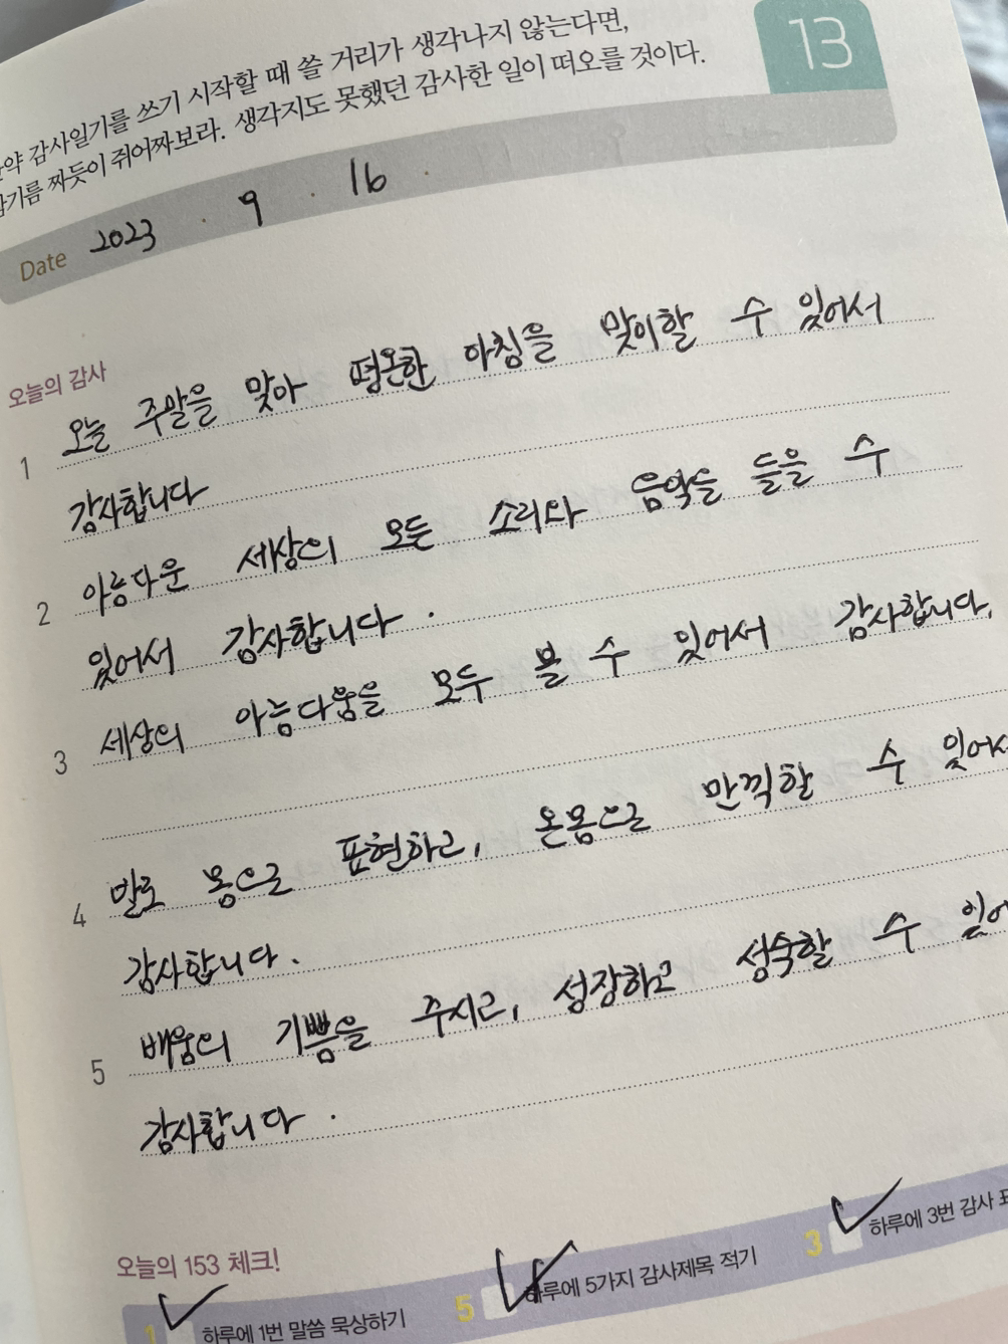 감사일기를 쓰기 시작할 때 쓸 거리가 생각나지 않는다면,
짜듯이 쥐어짜보라. 생각지도 못했던 감사한 일이 떠오를 것이다.
13
Date 2023 . 9 . 16 .
오늘의 감사
1 오늘 주말을 맞아 평온한 아침을 맞이할 수 있어서
감사합니다
2 아름다운 세상의 모든 소리와 음악을 들을 수
있어서 감사합니다.
3 세상의 아름다움을 모두 볼 수 있어서 감사합니다.
4 말로 몸으로 표현하고, 온몸으로 만끽할 수 있어서
감사합니다.
5 배움의 기쁨을 주시고, 성장하고 성숙할 수
감사합니다.
오늘의 153 체크!
1 하루에 1번 말씀 묵상하기
5 하루에 5가지 감사제목 적기
3 하루에 3번 감사